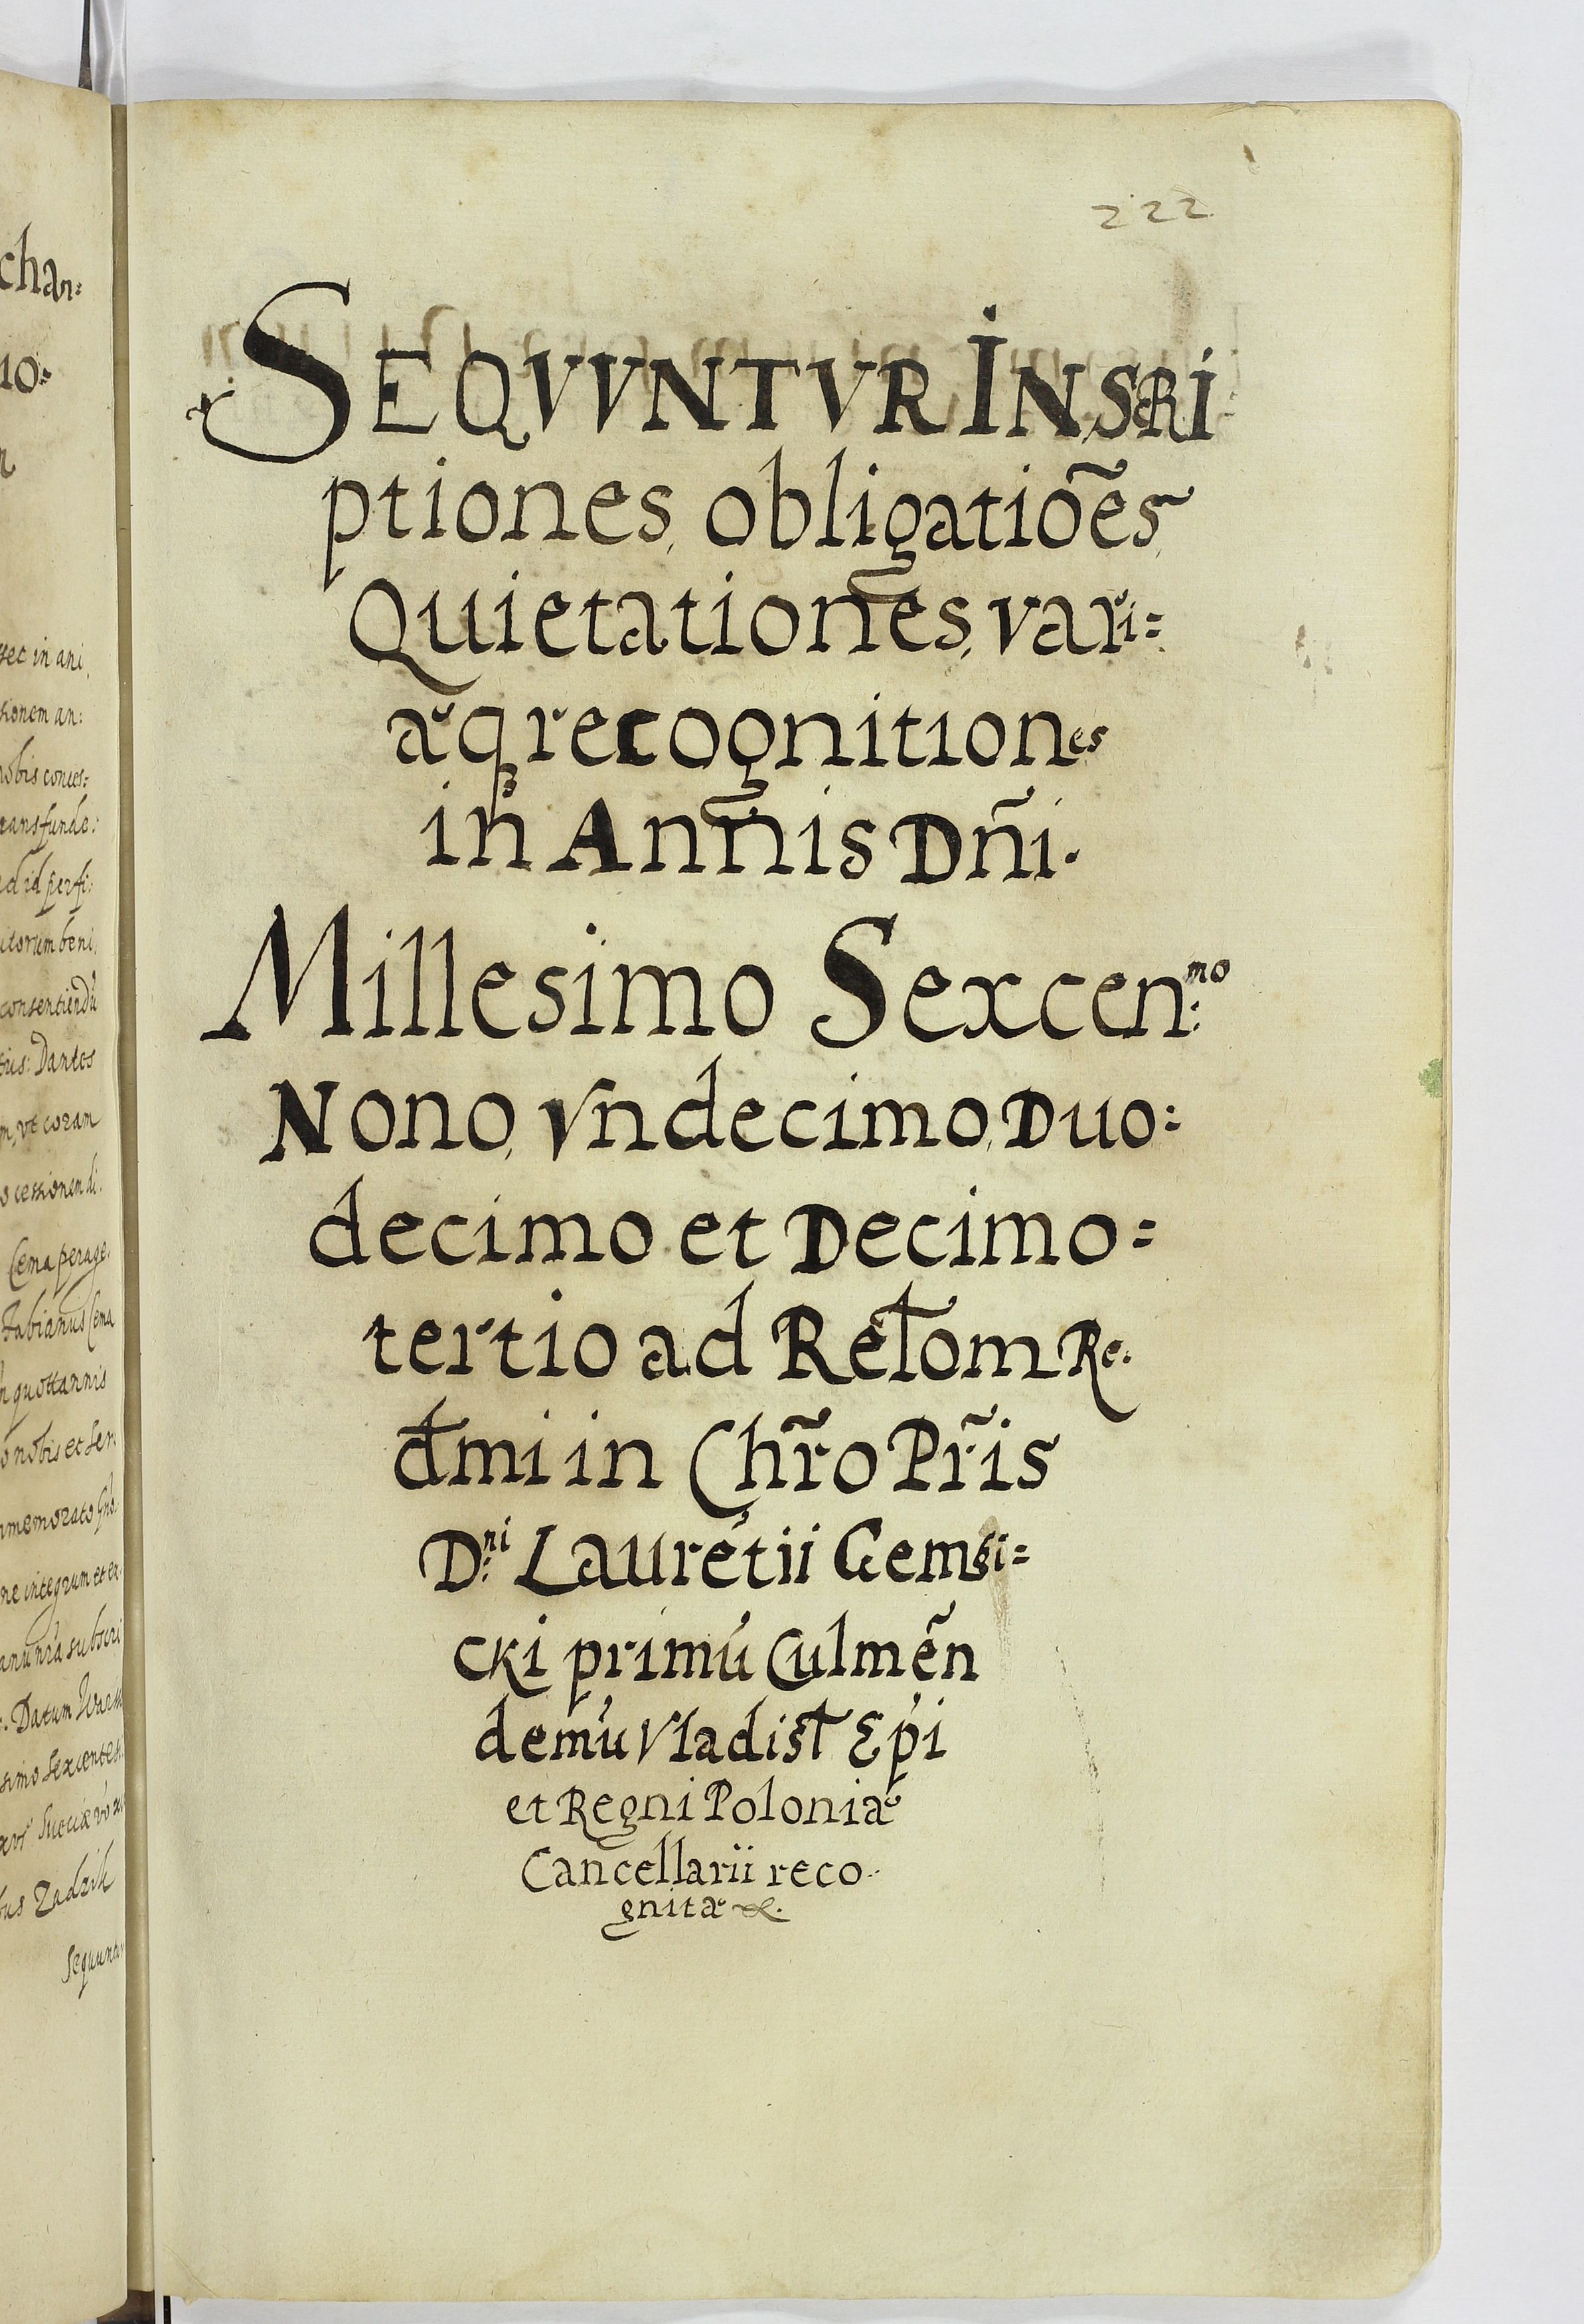 222
SEQVVNTVR INSCRI
ptiones, obligatiões,
Quietationes, vari=
æq3 recognitiones
in Annis Dñi.
Millesimo Sexcen:mo
Nono, Vndecimo, Duo:
decimo et Decimo=
tertio ad Retom Re.
dmi in Chr̃o Pr̃is
D:ni Lauretii Gembi=
cki primú Culmẽn
demú Vladisł Epi
et Regni Poloniæ
Cancellarii reco
gnitæ &.
chan=
io=
sec in ani
sionem an:
nobis conces=
transfunde:
ad id perfi:
itorum beni
consentiendú
Dantes
m, vt coram
o cessionem di.
Cema perage.
Fabianus Cema
quottannis
nobis et Ser:
memorato
ne integrum et
subscri
Datum
simo sexcentes
Sueciæ vó
bus Zadzik
Sequuntur